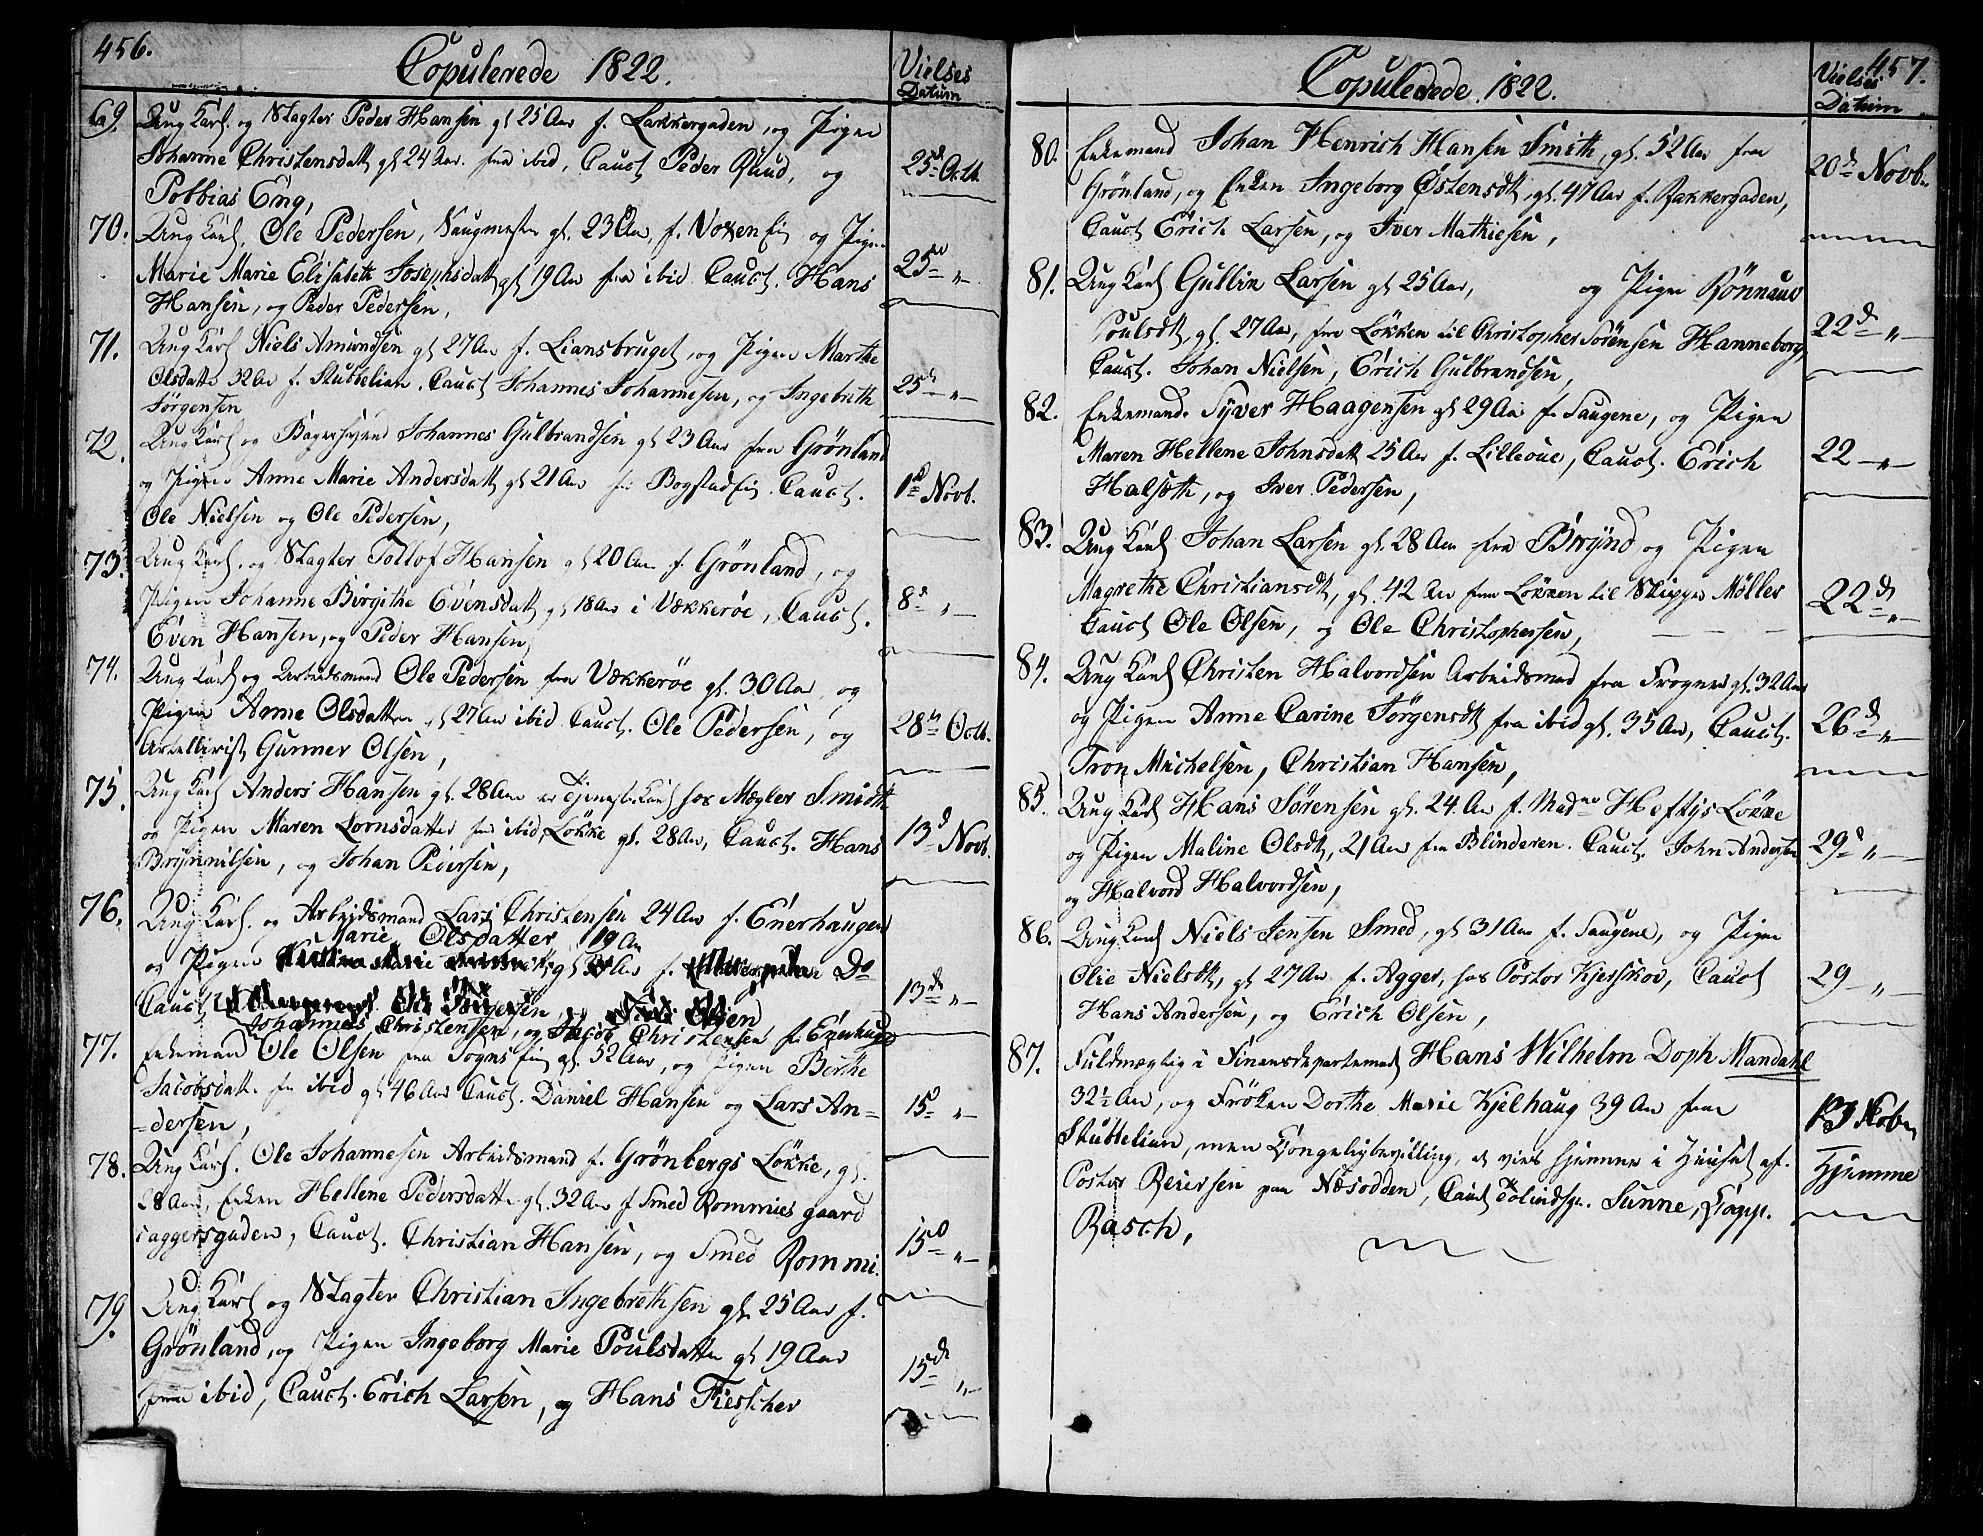 456.
Copulerede 1822.
Vielses
Datum
69. Ung Karl. og Slagter Peder Hansen gl 25 Aar f. Lakkergaden, og Pigen
Johanne Christensdatt gl 24 Aar. fra ibid, Cauct Peder Ruud, og
Tobbias Eng,
25d Octb.
70. Ung Karl. Ole Pedersen, Saugmester gl. 23 Aar, f. Voxen Eie og Pigen
Marie Marie Elisabeth Josephsdatt gl 19 Aar fra ibid Cauct. Hans
Hansen, og Peder Pedersen,
25de "
71. Ung Karl Niels Amundsen gl 27 Aar f. Liansbruget, og Pigen Marthe
Olsdatt 32 Aar f. Stubbelian. Cauct Johannes Johannesen, og Ingebreth
Jørgensen
25de "
72. Ung Karl og Bagersvend Johannes Gulbrandsen gl 23 Aar fra Grönland
og Pigen Anne Marie Andersdatt gl 21 Aar fra Bogstad Eie. Cauct.
Ole Nielsen og Ole Pedersen,
1d Novb.
73. Ung Karl. og Slagter Tollof Hansen gl 20 Aar f. Grönland, og
Pigen Johanne Birgithe Evensdatt gl 18 Aar i Vækkerøe, Cauct.
Even Hansen, og Peder Hansen,
8d "
74. Ung Karl og Arbeidsmand Ole Pedersen fra Vækkerøe gl. 30 Aar og
Pigen Anne Olsdatter gl 27 Aar ibid Cauct. Ole Pedersen, og
Artellerist Gunner Olsen,
28de Octb.
75. Ung Karl Anders Hansen gl. 28 Aar er Tjenestekarl hos Mægler Smidth
og Pigen Maren Lornsdatter fra ibid Løkke gl. 28 Aar, Cauct. Hans
Brynnilsen, og Johan Pedersen,
13d Novb.
76. Ung Karl. og Arbeidsmand Lars Christensen 24 Aar f. Enerhaugen
Marie Olsdatter 19 Aar
og Pigen gl Aar f. Do
Cauct
Johannes Christensen, og Jacob Christensen f. Enerhaug
13de "
77. Enkemand Ole Olsen fra Sogns Eie gl. 52 Aar, og Pigen Berthe
Jacobsdatt. fra ibid gl 46 Aar Cauct. Daniel Hansen og Lars An=
=dersen,
15d "
78. Ung Karl. Ole Johannesen Arbeidsmand f. Grönbergs Løkke, gl.
28 Aar, Enken Hellene Pedersdatter gl. 32 Aar f Smed Rommies gaard
i aggersgaden, Cauct. Christian Hansen, og Smed Rommi.
15d "
79. Ung Karl og Slagter Christian Ingebrethsen gl. 25 Aar f.
Grönland, og Pigen Ingeborg Marie Poulsdatter gl 19 Aar
fra ibid, Cauct. Erich Larsen, og Hans Fiersscher
15de "
457.
Copulerede 1822.
Vielses
Datum
80. Enkemand Johan Henrich Hansen Smith, gl. 52 Aar fra
Grønland, og Enken Ingeborg Østensdt, gl. 47 Aar f. Rakkergaden,
Cauct Erich Larsen, og Iver Mathiesen,
20de Novb.
81. Ung Karl Gullik Larsen gl 25 Aar, og Pigen Rönnaug
Poulsdt, gl. 27 Aar, fra Løkken til Christopher Sørensen Hanneborg
Cauct. Johan Nielsen, Erich Gulbrandsen,
22d "
82. Enkemand. Syver Haagensen gl 29 Aar f. Saugene, og Pigen
Maren Hellene Johnsdatt 25 Aar f. Lilleoue, Cauct. Erich
Halseth, og Iver Pedersen,
22 "
83. Ung Karl Johan Larsen gl. 28 Aar fra Brÿnd og Pigen
Magrethe Christiansdt, gl. 42 Aar fra Løkken til Skipper Møller
Cauct Ole Olsen, og Ole Christophersen,
22d "
84. Ung Karl Christen Halvordsen Arbeidsmad fra Frogner gl. 32 Aar
og Pigen Anne Carine Jørgensdt fra ibid gl. 35 Aar, Cauct.
Tron Michelsen, Christian Hansen,
26d "
85. Ung Karl Hans Sørensen gl. 24 Aar f. Madme Heftys Løkke
og Pigen Maline Olsdt, 21 Aar fra Blinderen. Cauct. John Andersen
og Halvord Halvordsen,
29d "
86. Ung Karl Niels Jensen Smed, gl 31 Aar f. Saugene, og Pigen
Olie Nielsdt, gl. 27 Aar f. Agger, hos Pastor Kjerskov, Cauct
Hans Andersen, og Erich Olsen,
29 "
87. Fuldmægtig i Finansdepartemet Hans Wilhelm Doph Mandahl
32½ Aar, og Frøken Dorthe Marie Kjelhaug 39 Aar fra
Stubbelian, men Kongeligbevilling, at vies hjemme i Huuset af.
Pastor Reiersen paa Næsodden, Cauct Sunne, Kapp.
Rasch,
13 Novb.
Hjemme